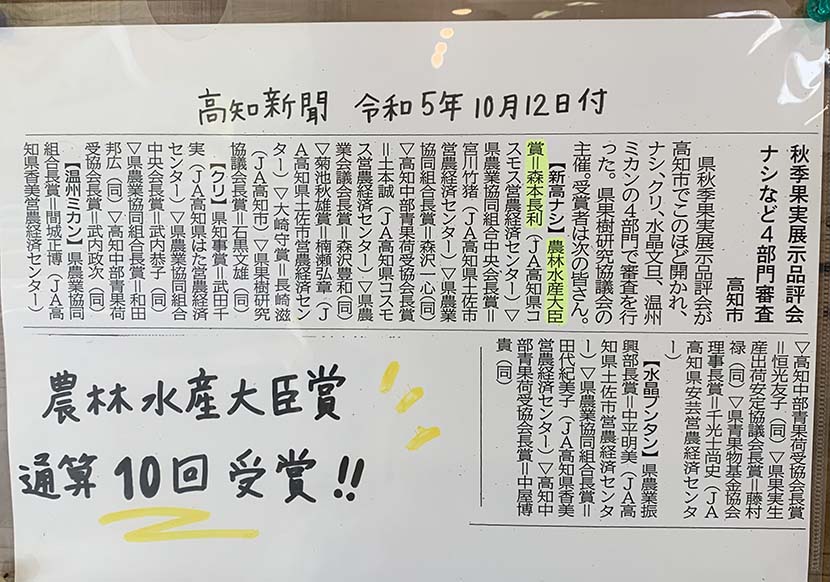 高知新聞 令和5年10月12日付
秋季果実展示品評会
ナシなど4部門審査
高知市
県秋季果実展示品評会が
高知市でこのほど開かれ、
ナシ、クリ、水晶文旦、温州
ミカンの4部門で審査を行
った。県果樹研究協議会の
主催。受賞者は次の皆さん。
【新高ナシ】農林水産大臣
賞＝森本長利（JA高知県コ
スモス営農経済センター）▽
県農業協同組合中央会長賞＝
宮川竹猪（JA高知県土佐市
営農経済センター）▽県農業
協同組合長賞＝森沢一心（同）
▽高知中部青果荷受協会長賞
＝土本誠（JA高知県コスモ
ス営農経済センター）▽県農
業会議会長賞＝森沢豊和（同）
▽菊池秋雄賞＝楠瀬弘章（J
A高知県土佐市営農経済セン
ター）▽大崎守賞＝長崎滋
（JA高知市）▽県果樹研究
協議会長賞＝石黒文雄（同）
【クリ】県知事賞＝武田千
実（JA高知県はた営農経済
センター）▽県農業協同組合
中央会長賞＝武内恭子（同）
▽県農業協同組合長賞＝和田
邦広（同）▽高知中部青果荷
受協会長賞＝武内政次（同）
【温州ミカン】県農業協同
組合長賞＝間城正博（JA高
知県香美営農経済センター）
▽高知中部青果荷受協会長賞
＝恒光友子（同）▽県果実生
産出荷安定協議会長賞＝藤村
禄（同）▽県青果物基金協会
理事長賞＝千光士尚史（JA
高知県安芸営農経済センタ
ー）
【水晶ブンタン】県農業振
興部長賞＝中平明美（JA高
知県土佐市営農経済センタ
ー）▽県農業協同組合長賞＝
田代紀美子（JA高知県香美
営農経済センター）▽高知中
部青果荷受協会長賞＝中屋博
貴（同）
農林水産大臣賞
通算10回受賞!!